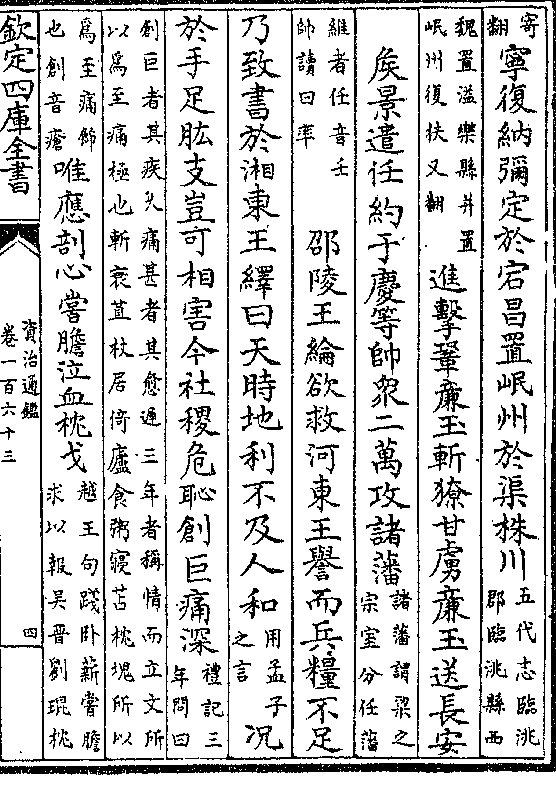 寄
翻
寧復納彌定於宕昌置岷州於渠株川
五代志臨洮
郡臨洮縣西
魏置溢樂縣并置
岷州復扶又翻
進擊鞏廉玉斬獠甘虜廉玉送長安
侯景遣任約于慶等帥衆二萬攻諸藩
諸藩謂梁之
宗室分任藩
維者任音壬
帥讀曰率
邵陵王綸欲救河東王譽而兵糧不足
乃致書於湘東王繹曰天時地利不及人和
用孟子
之言
况
於手足肱支豈可相害今社稷危恥創巨痛深
禮記三
年問曰
創巨者其疾久痛甚者其愈遲三年者稱情而立文所
以爲至痛極也斬衰苴杖居倚廬食粥寢苫枕塊所以
爲至痛飾
也創音瘡
唯應剖心嘗膽泣血枕戈
越王句踐卧薪嘗膽
求以報吴晉劉琨枕
欽定四庫全書
資治通鑑
卷一百六十三
四